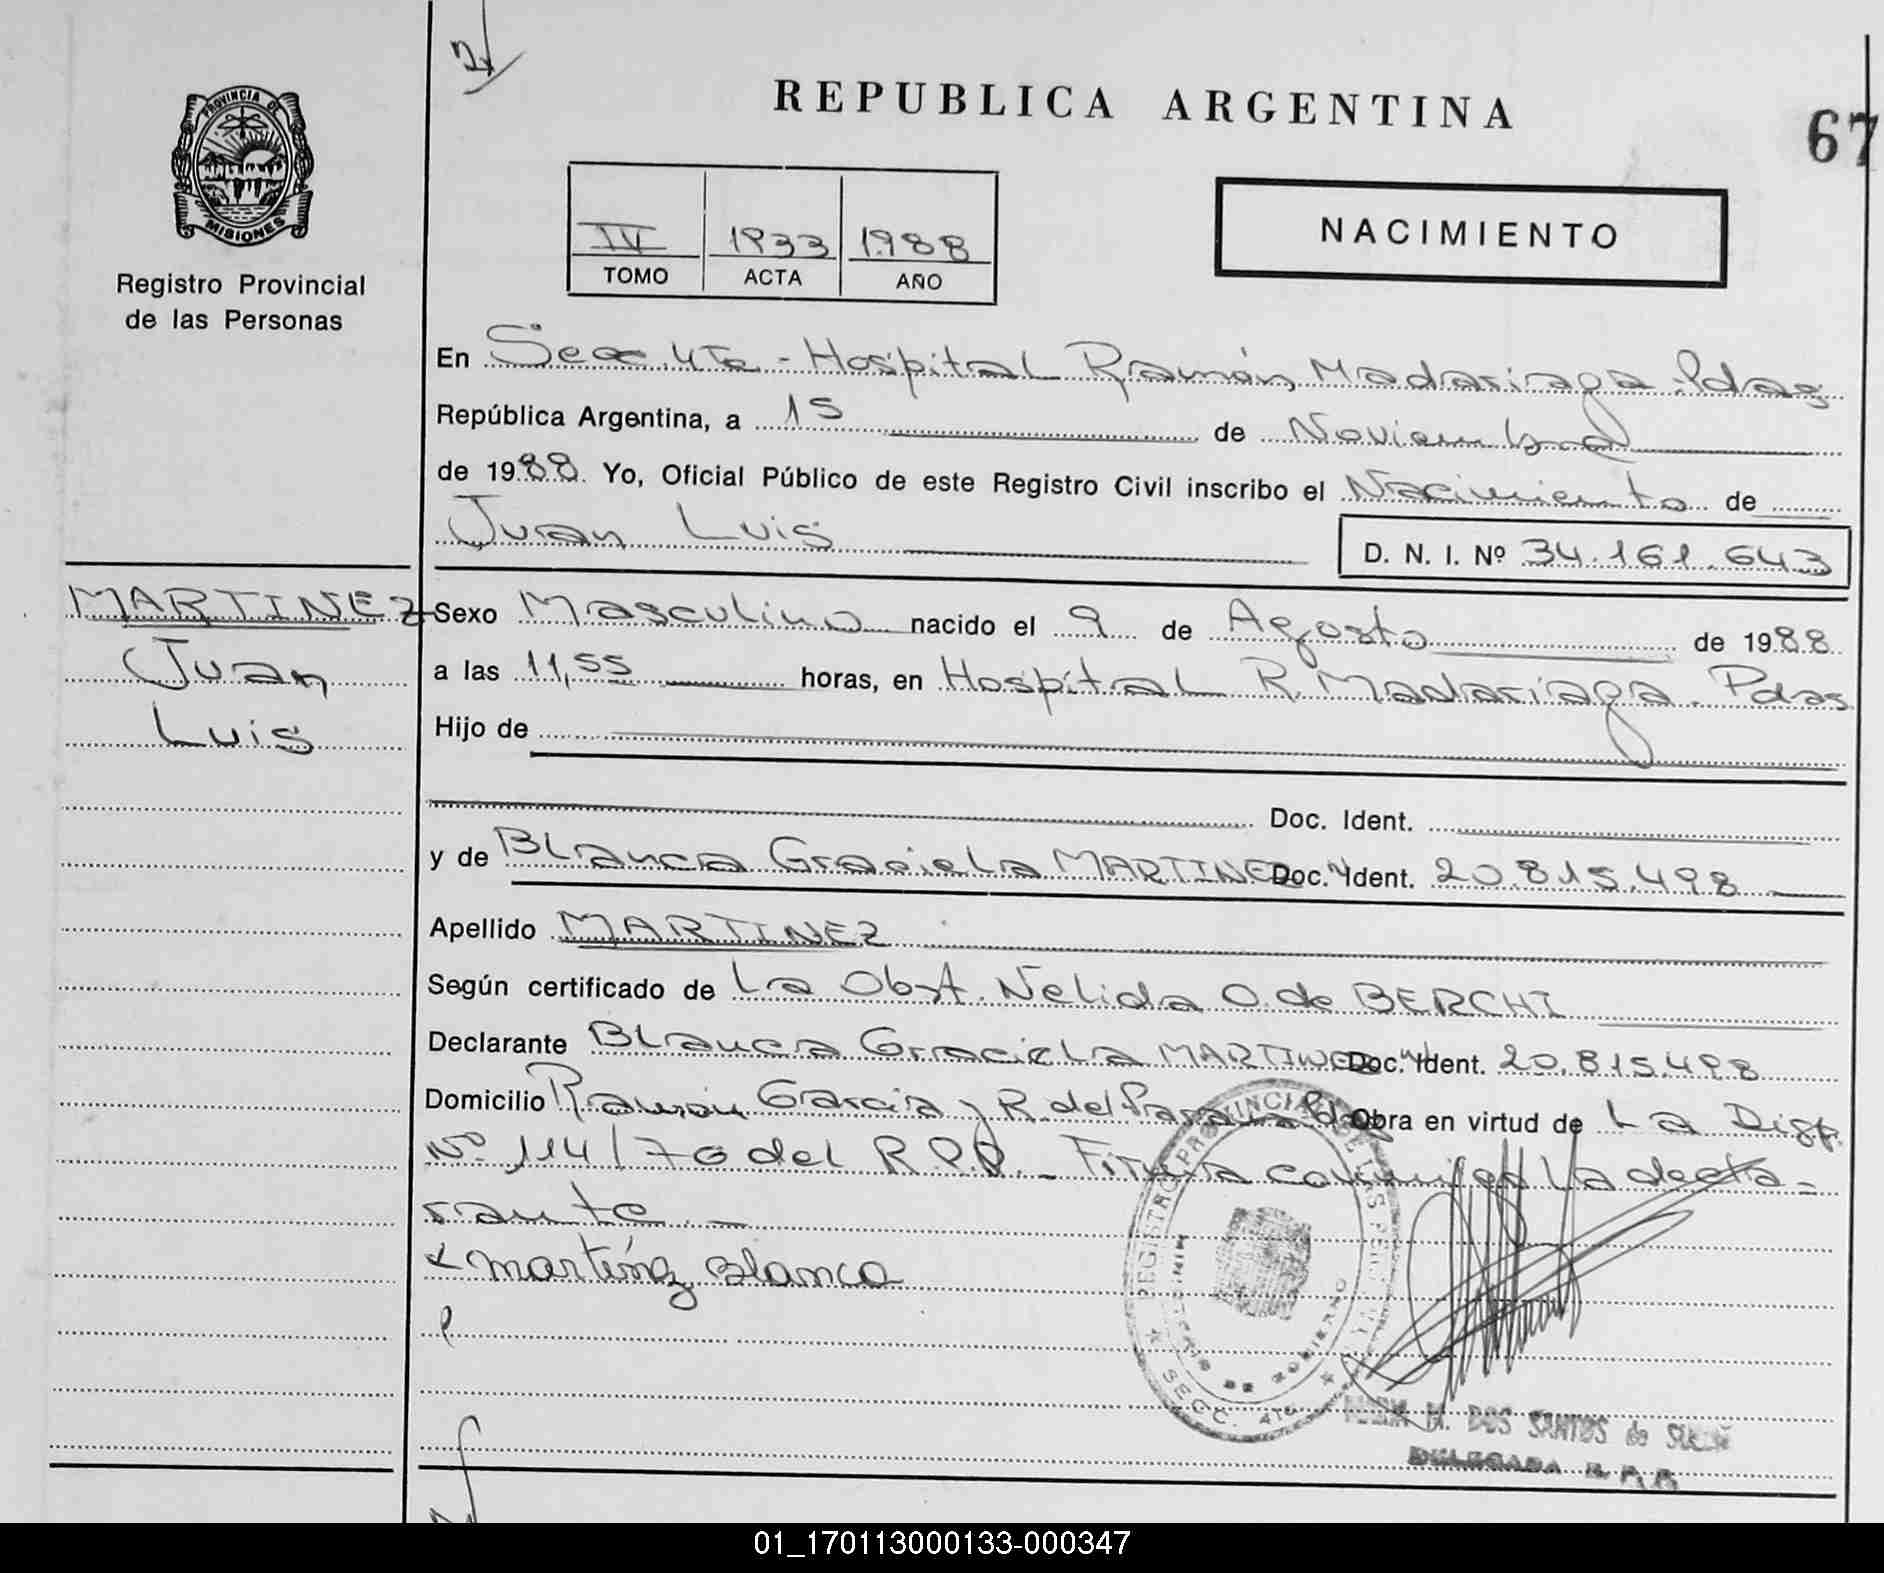 REPUBLICA ARGENTINA
67
PROVINCIA DE
MISIONES
Registro Provincial
de las Personas
IV 1933 1988
TOMO ACTA AÑO
NACIMIENTO
En Secc. 4ta - Hospital Ramón Madariaga - Pdas
República Argentina, a 15 de Noviembre
de 1988. Yo, Oficial Público de este Registro Civil inscribo el Nacimiento de
Juan Luis
D. N. I. Nº 34.161.643
MARTINEZ
Juan
Luis
Sexo Masculino nacido el 9 de Agosto de 1988
a las 11,55 horas, en Hospital R. Madariaga. Pdas
Hijo de
Doc. Ident.
y de Blanca Graciela MARTINEZ Doc. Ident. 20.815.498
Apellido MARTINEZ
Según certificado de La Obst. Nelida O. de BERCHI
Declarante Blanca Graciela MARTINEZ Doc. Ident. 20.815.498
Domicilio Ramón Garcia y R. del Parana Pdas Obra en virtud de La Disp.
Nº 114/70 del R.P.P. - Firma conmigo La decla-
rante. -
Martínez Blanca
SECC. 4ta
M. DOS SANTOS de
DELEGADA R. P. P.
01_170113000133-000347